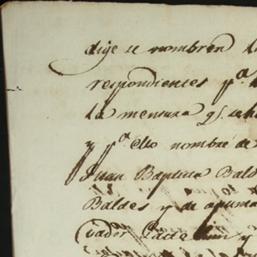 dije se nombren l
respondientes p.ª
la mensura q.
y p.ª ello nombre de
Juan Bautista Bald
Baldes y de apun